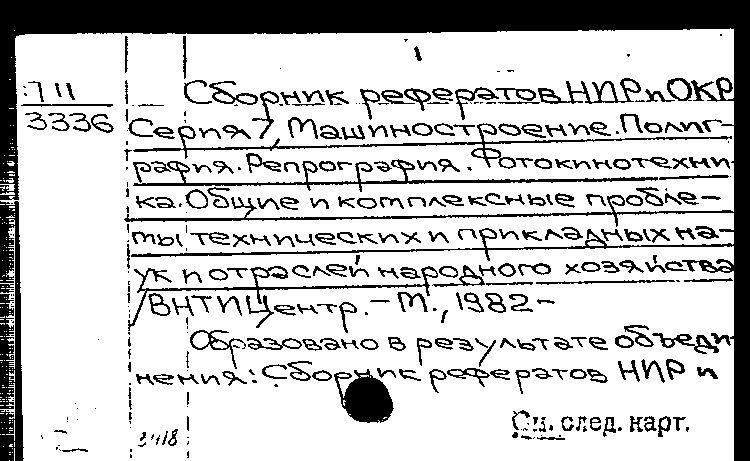 1
:711
3336
Сборник рефератов НИР и ОКР
Серия 7, Машиностроение. Полиг-
рафия. Репрография. Фотокинотехни-
ка. Общие и комплексные пробле-
мы технических и прикладных на-
ук и отраслей народного хозяйства
/ВНТИЦентр. – М., 1982 –
Образовано в результате объеди-
нения: Сборник рефератов НИР и
См. след. карт.
3418